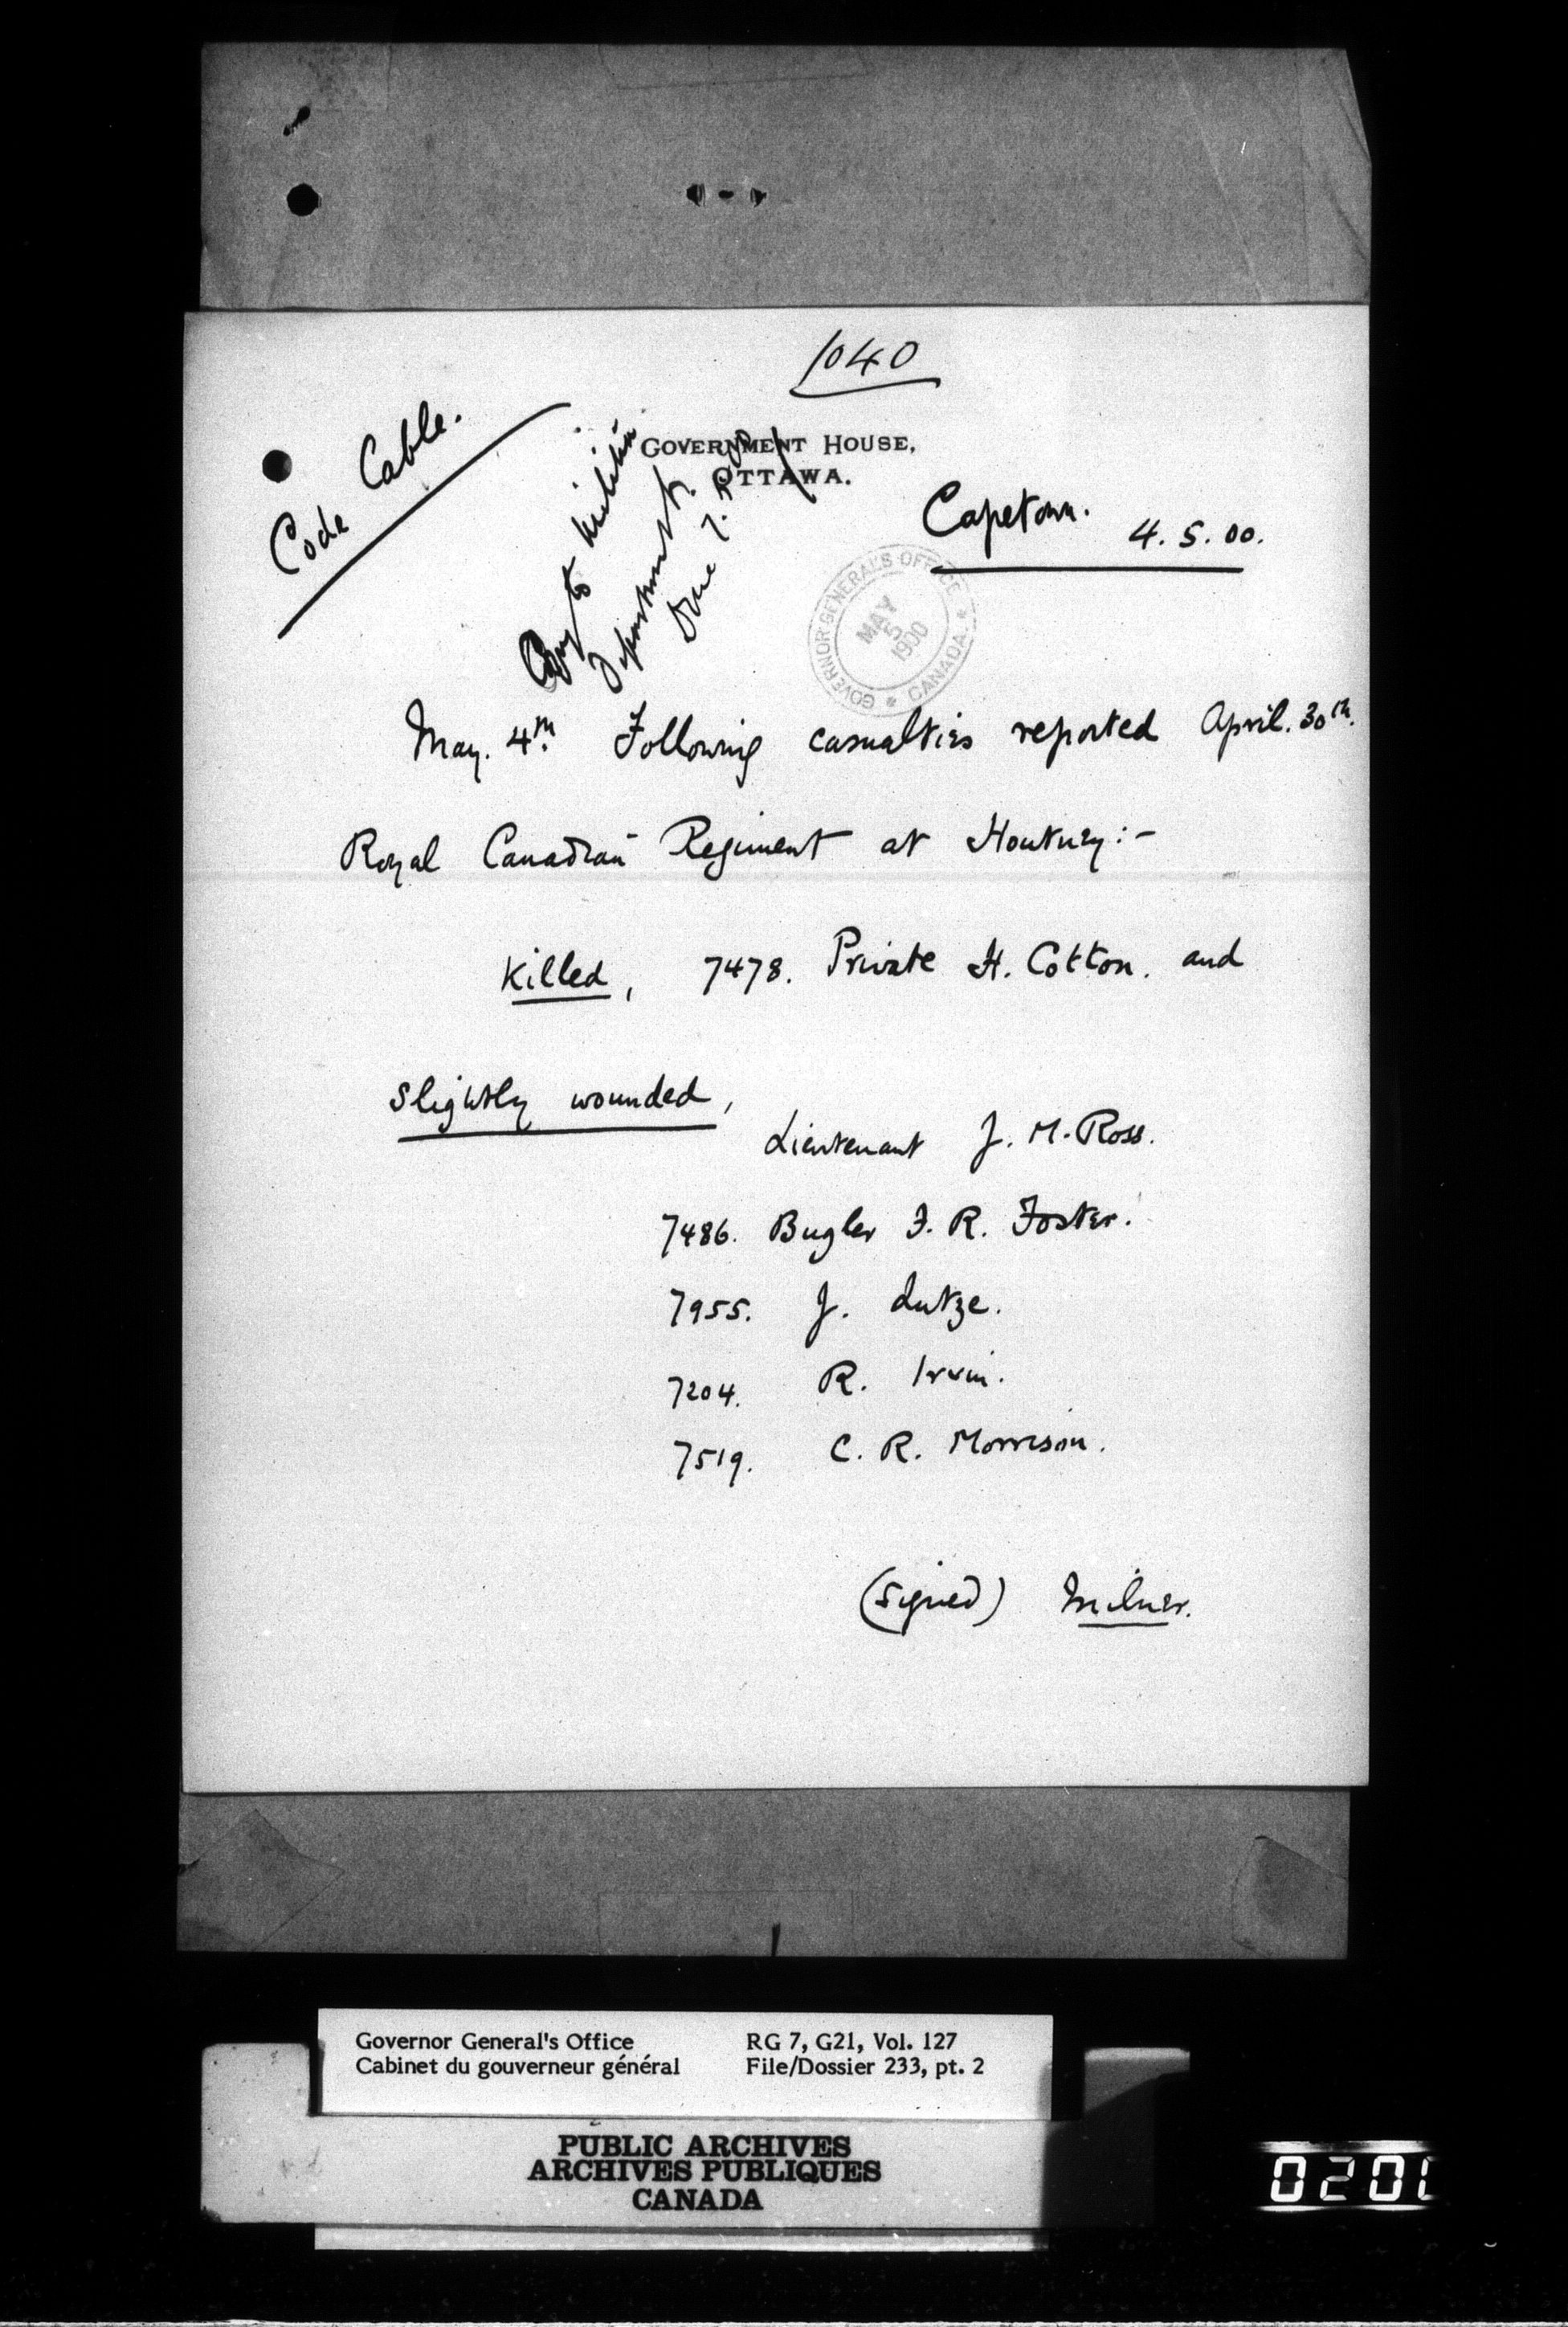 1040
Code Cable.
GOVERNMENT HOUSE,
OTTAWA.
Copy to Militia
Department.
Done
Capetown. 4.5.00.
GOVERNOR GENERAL'S OFFICE * CANADA *
MAY
5
1900
May. 4th. Following casualties reported April. 30th.
Royal Canadian Regiment at Houtney:-
Killed, 7478. Private H. Cotton. and
Slightly wounded,
Lieutenant J. M. Ross.
7486. Bugler F. R. Foster.
7955. J. Lutze.
7204. R. Irwin.
7519. C. R. Morrison.
(signed) Milner.
Governor General's Office RG 7, G21, Vol. 127
Cabinet du gouverneur général File/Dossier 233, pt. 2
PUBLIC ARCHIVES
ARCHIVES PUBLIQUES
CANADA
0201